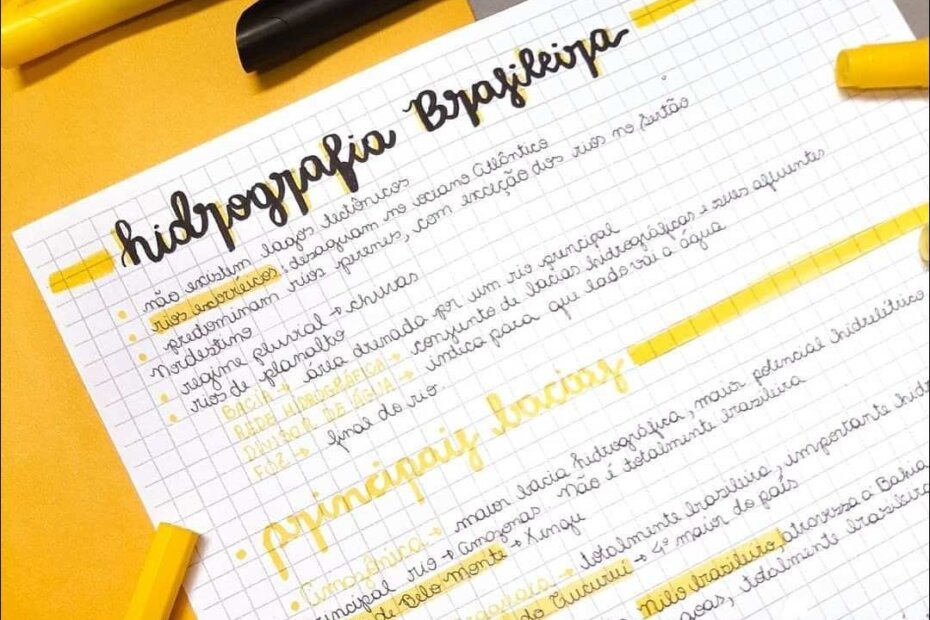 hidrografia Brasileira
• não existem lagos tectônicos
• rios exorréicos: desaguam no oceano Atlântico
• predominam rios perenes, com exceção dos rios no Sertão
Nordestino
• regime pluvial → chuvas
• rios de planalto
BACIA → área drenada por um rio principal
REDE HIDROGRÁFICA → conjunto de bacias hidrográficas e seus afluentes
DIVISOR DE ÁGUA → indica para que lado vai a água
FOZ → final do rio
• principais bacias
• Amazônica → maior bacia hidrográfica, maior potencial hidrelétrico
rio → Amazonas. Não é totalmente brasileira
de Belo Monte → Xingu
→ totalmente brasileira, importante
do Tucuruí → 4ª maior do país
Nilo brasileiro, atravessa a Bahia
totalmente brasileira